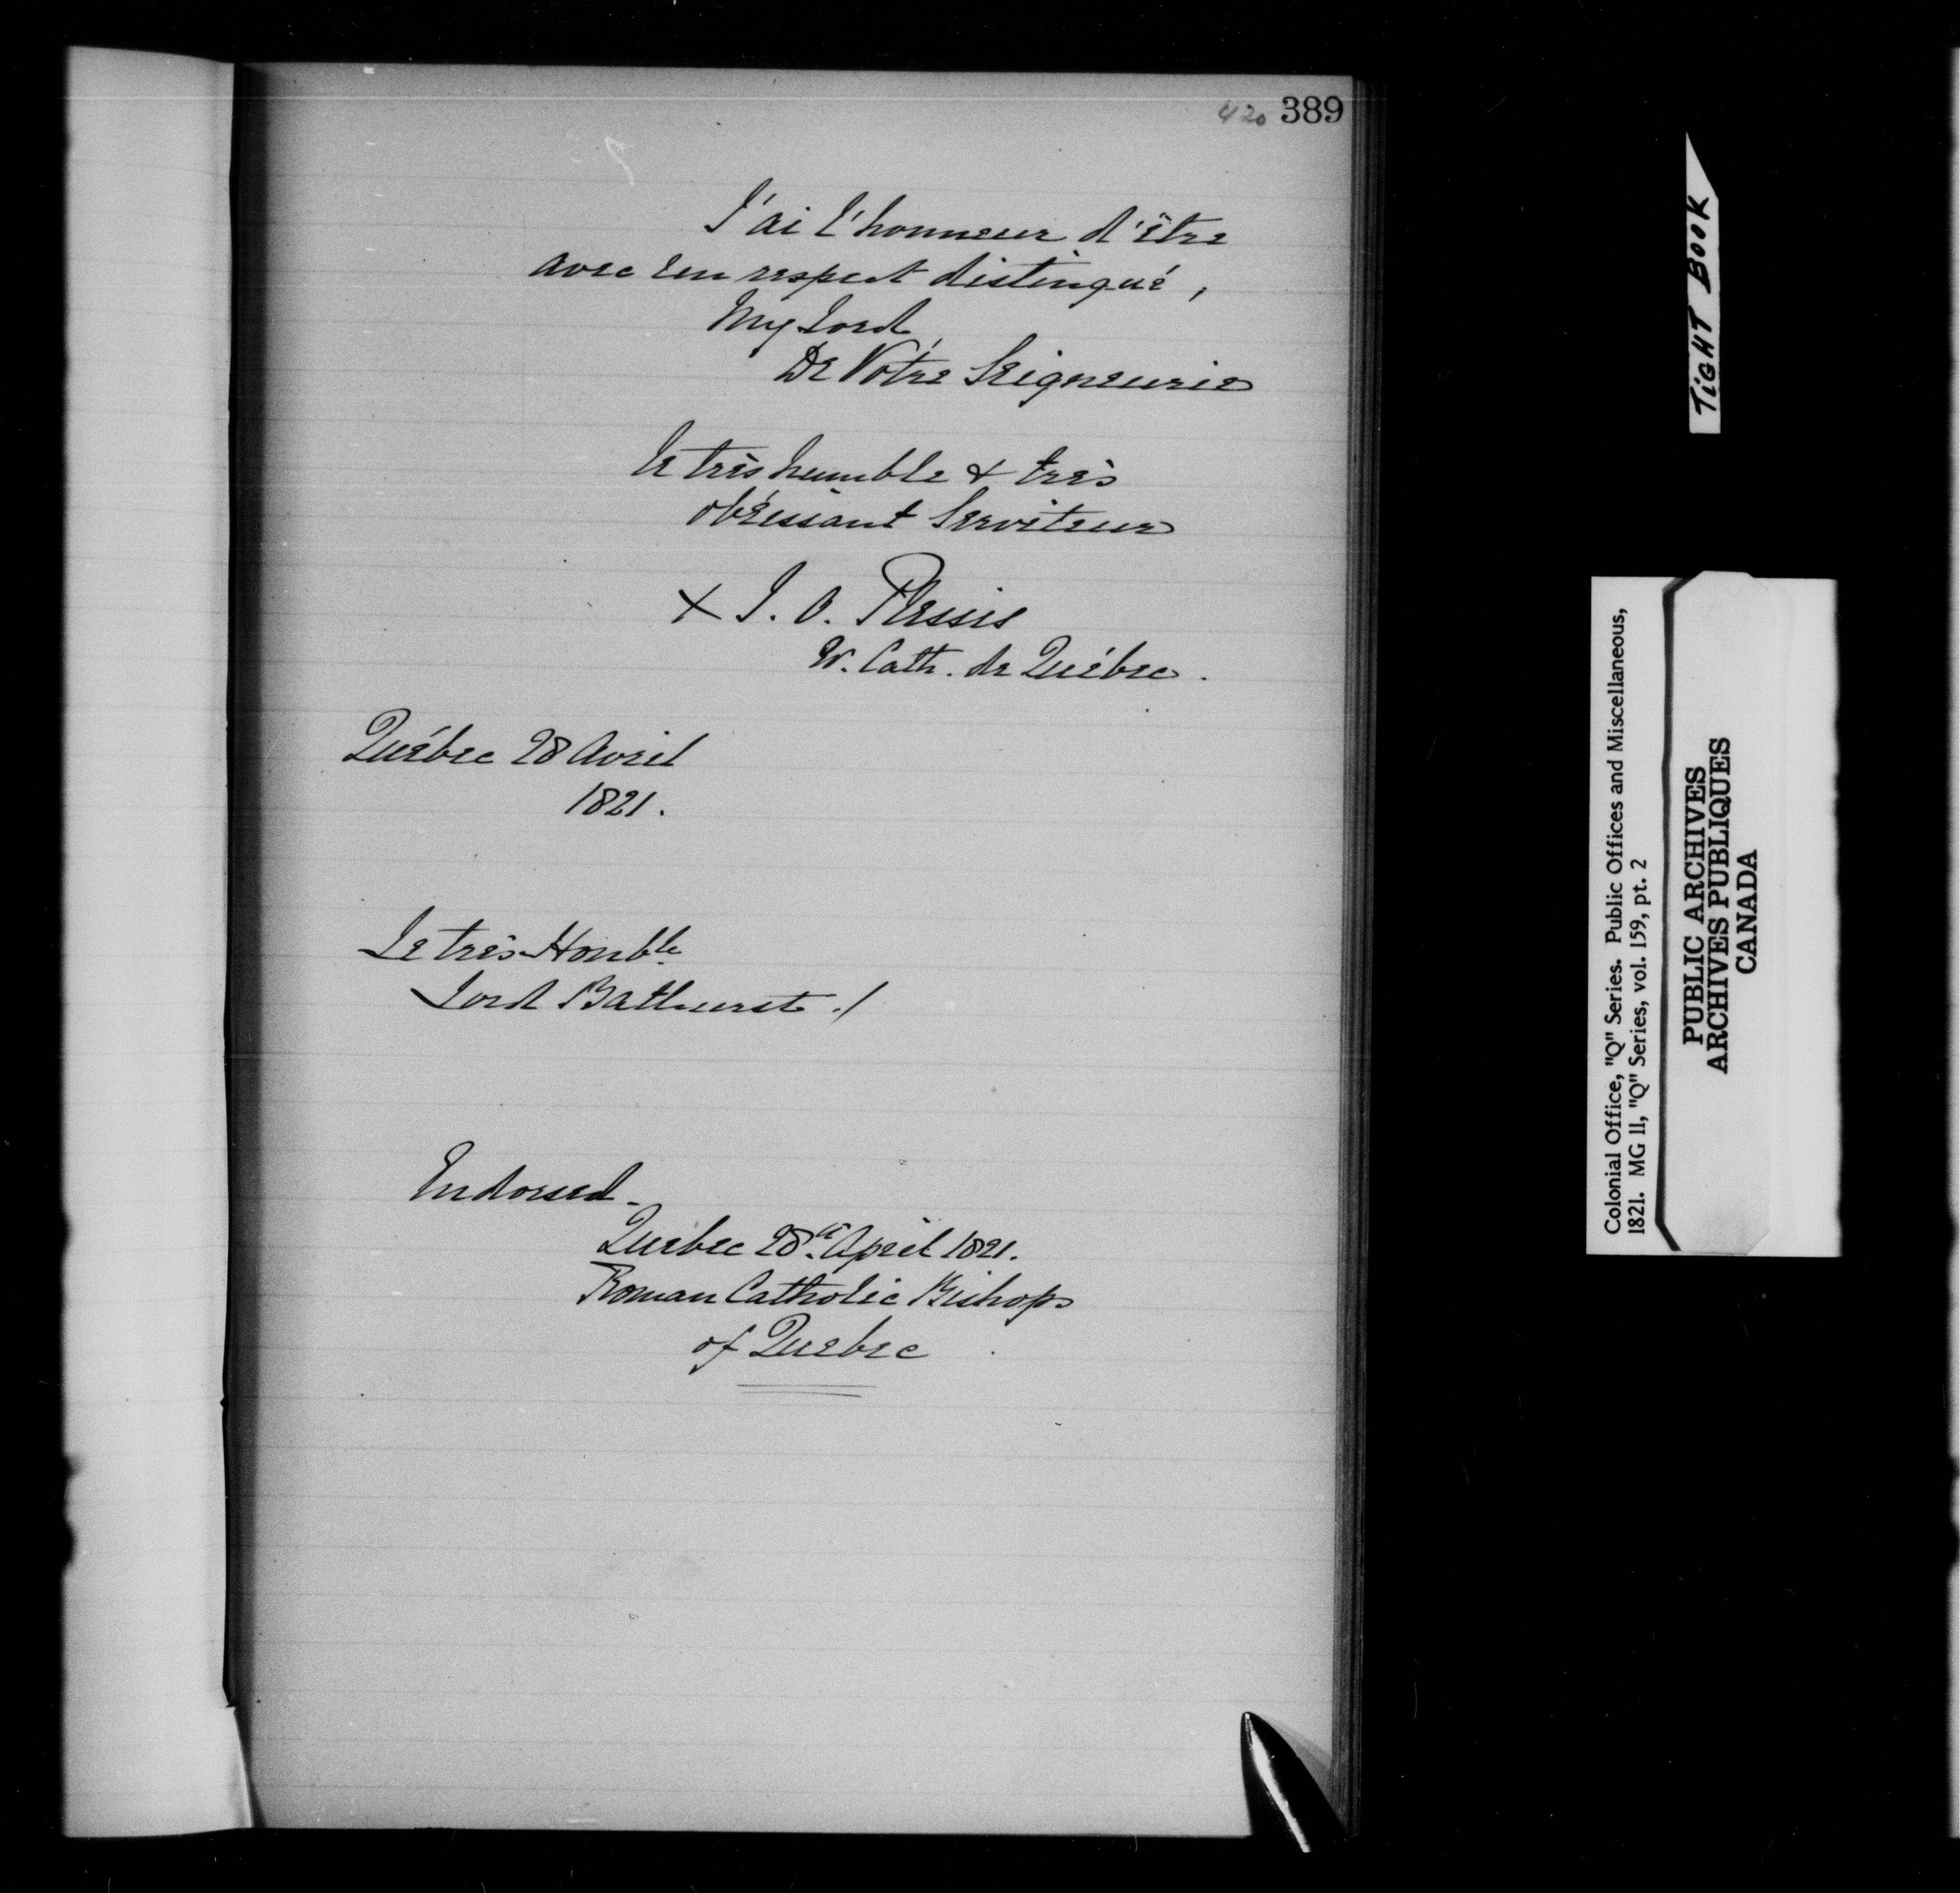 420 389
J'ai l'honneur d'être
avec un respect distingué,
My Lord,
De Vôtre Seigneurie
le très humble & très
obéissant Serviteur
+ J. O. Plessis
Cath. de Québec.
Québec 28 Avril
1821.
Le très Honble
Lord Bathurst ./
Endorsed -
Quebec 28th April 1821.
Roman Catholic Bishop
of Quebec
TIGHT BOOK
Colonial Office, "Q" Series. Public Offices and Miscellaneous,
1821. MG 11, "Q" Series, vol. 159, pt. 2
PUBLIC ARCHIVES
ARCHIVES PUBLIQUES
CANADA